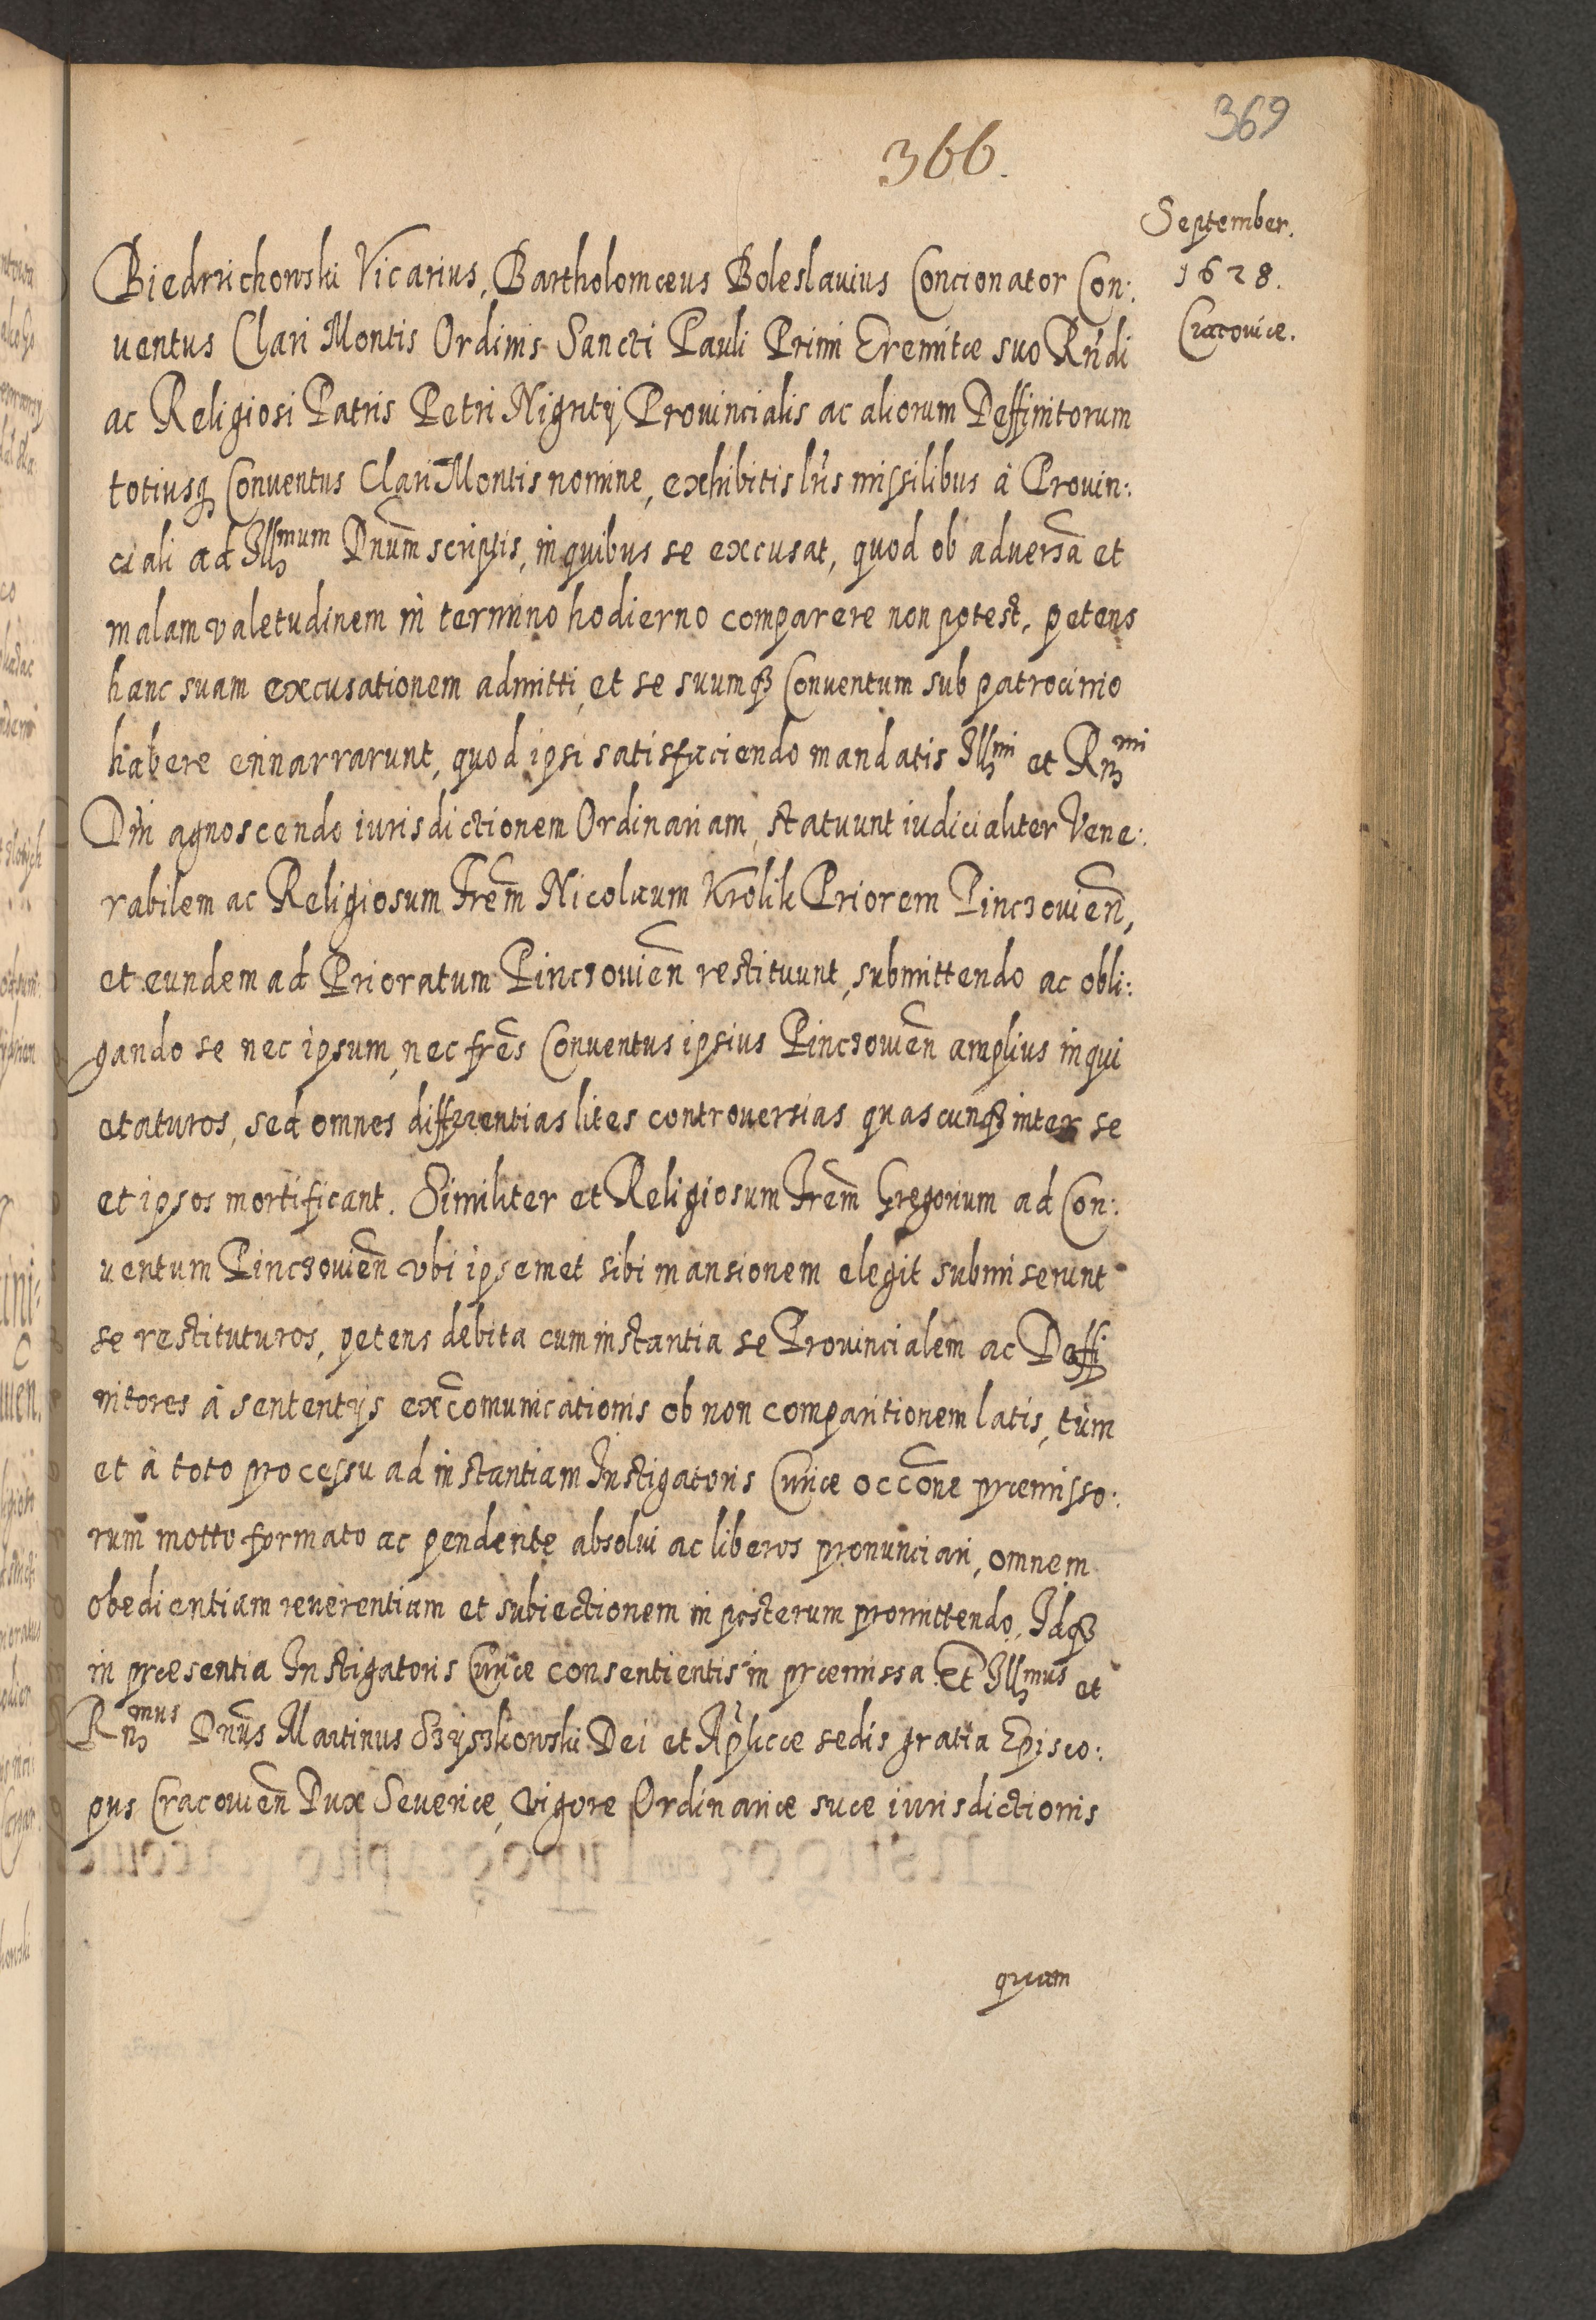 369
366.
September.
1628.
Cracoviæ.
Biedrzichowski Vicarius, Bartholomæus Boleslauius Concionator Con:
uentus Clari Montis Ordinis Sancti Pauli Primi Eremitæ suo Rñdi
ac Religiosi Patris Petri Nigrity Prouincialis ac aliorum Deffinitorum
totiusq̢ Conuentus Clari Montis nomine, exhibitis lr̃is missilibus à Prouin:
ciali ad Illmum Dnũm scriptis, in quibus se excusat, quod ob adversã et
malam valetudinem in termino hodierno comparere non potest, petens
hanc suam excusationem admitti, et se suumqꝫ Conuentum sub patrocinio
habere ennarrarunt, quod ipsi satisfaciendo mandatis Illmi et Rnmi
Dñi agnoscendo iurisdictionem Ordinariam, statuunt iudicialiter Vene:
rabilem ac Religiosum Frẽm Nicolaum Krolik Priorem Pinczouieñ,
et eundem ad Prioratum Pinczouieñ restituunt, submittendo ac obli:
gando se nec ipsum, nec frẽs Conuentus ipsius Pinczouieñ amplius inqui
etaturos, sed omnes differentias lites controuersias quascunqꝫ inter se
et ipsos mortificant. Similiter et Religiosum Frẽm Gregorium ad Con:
uentum Pinczouieñ vbi ipsemet sibi mansionem elegit submiserunt
se restituturos, petens debita cum instantia se Prouincialem ac Deffi
nitores à sententys excõmunicationis ob non comparitionem latis, tùm
et à toto processu ad instantiam Instigatoris Curiæ occõne præmisso:
rum motto formato ac pendente absolui ac liberos pronunciari, omnem
obedientiam reuerentiam et subiectionem in posterum promittendo. Idqꝫ
in præsentia Instigatoris Curiæ consentientis in præmissa. Et Illmus et
Rnmus Dnũs Martinus Szyszkowski Dei et Apl̃icæ sedis gratia Episco:
pus Cracouieñ Dux Seueriæ, vigore Ordinariæ suæ iurisdictionis
quam